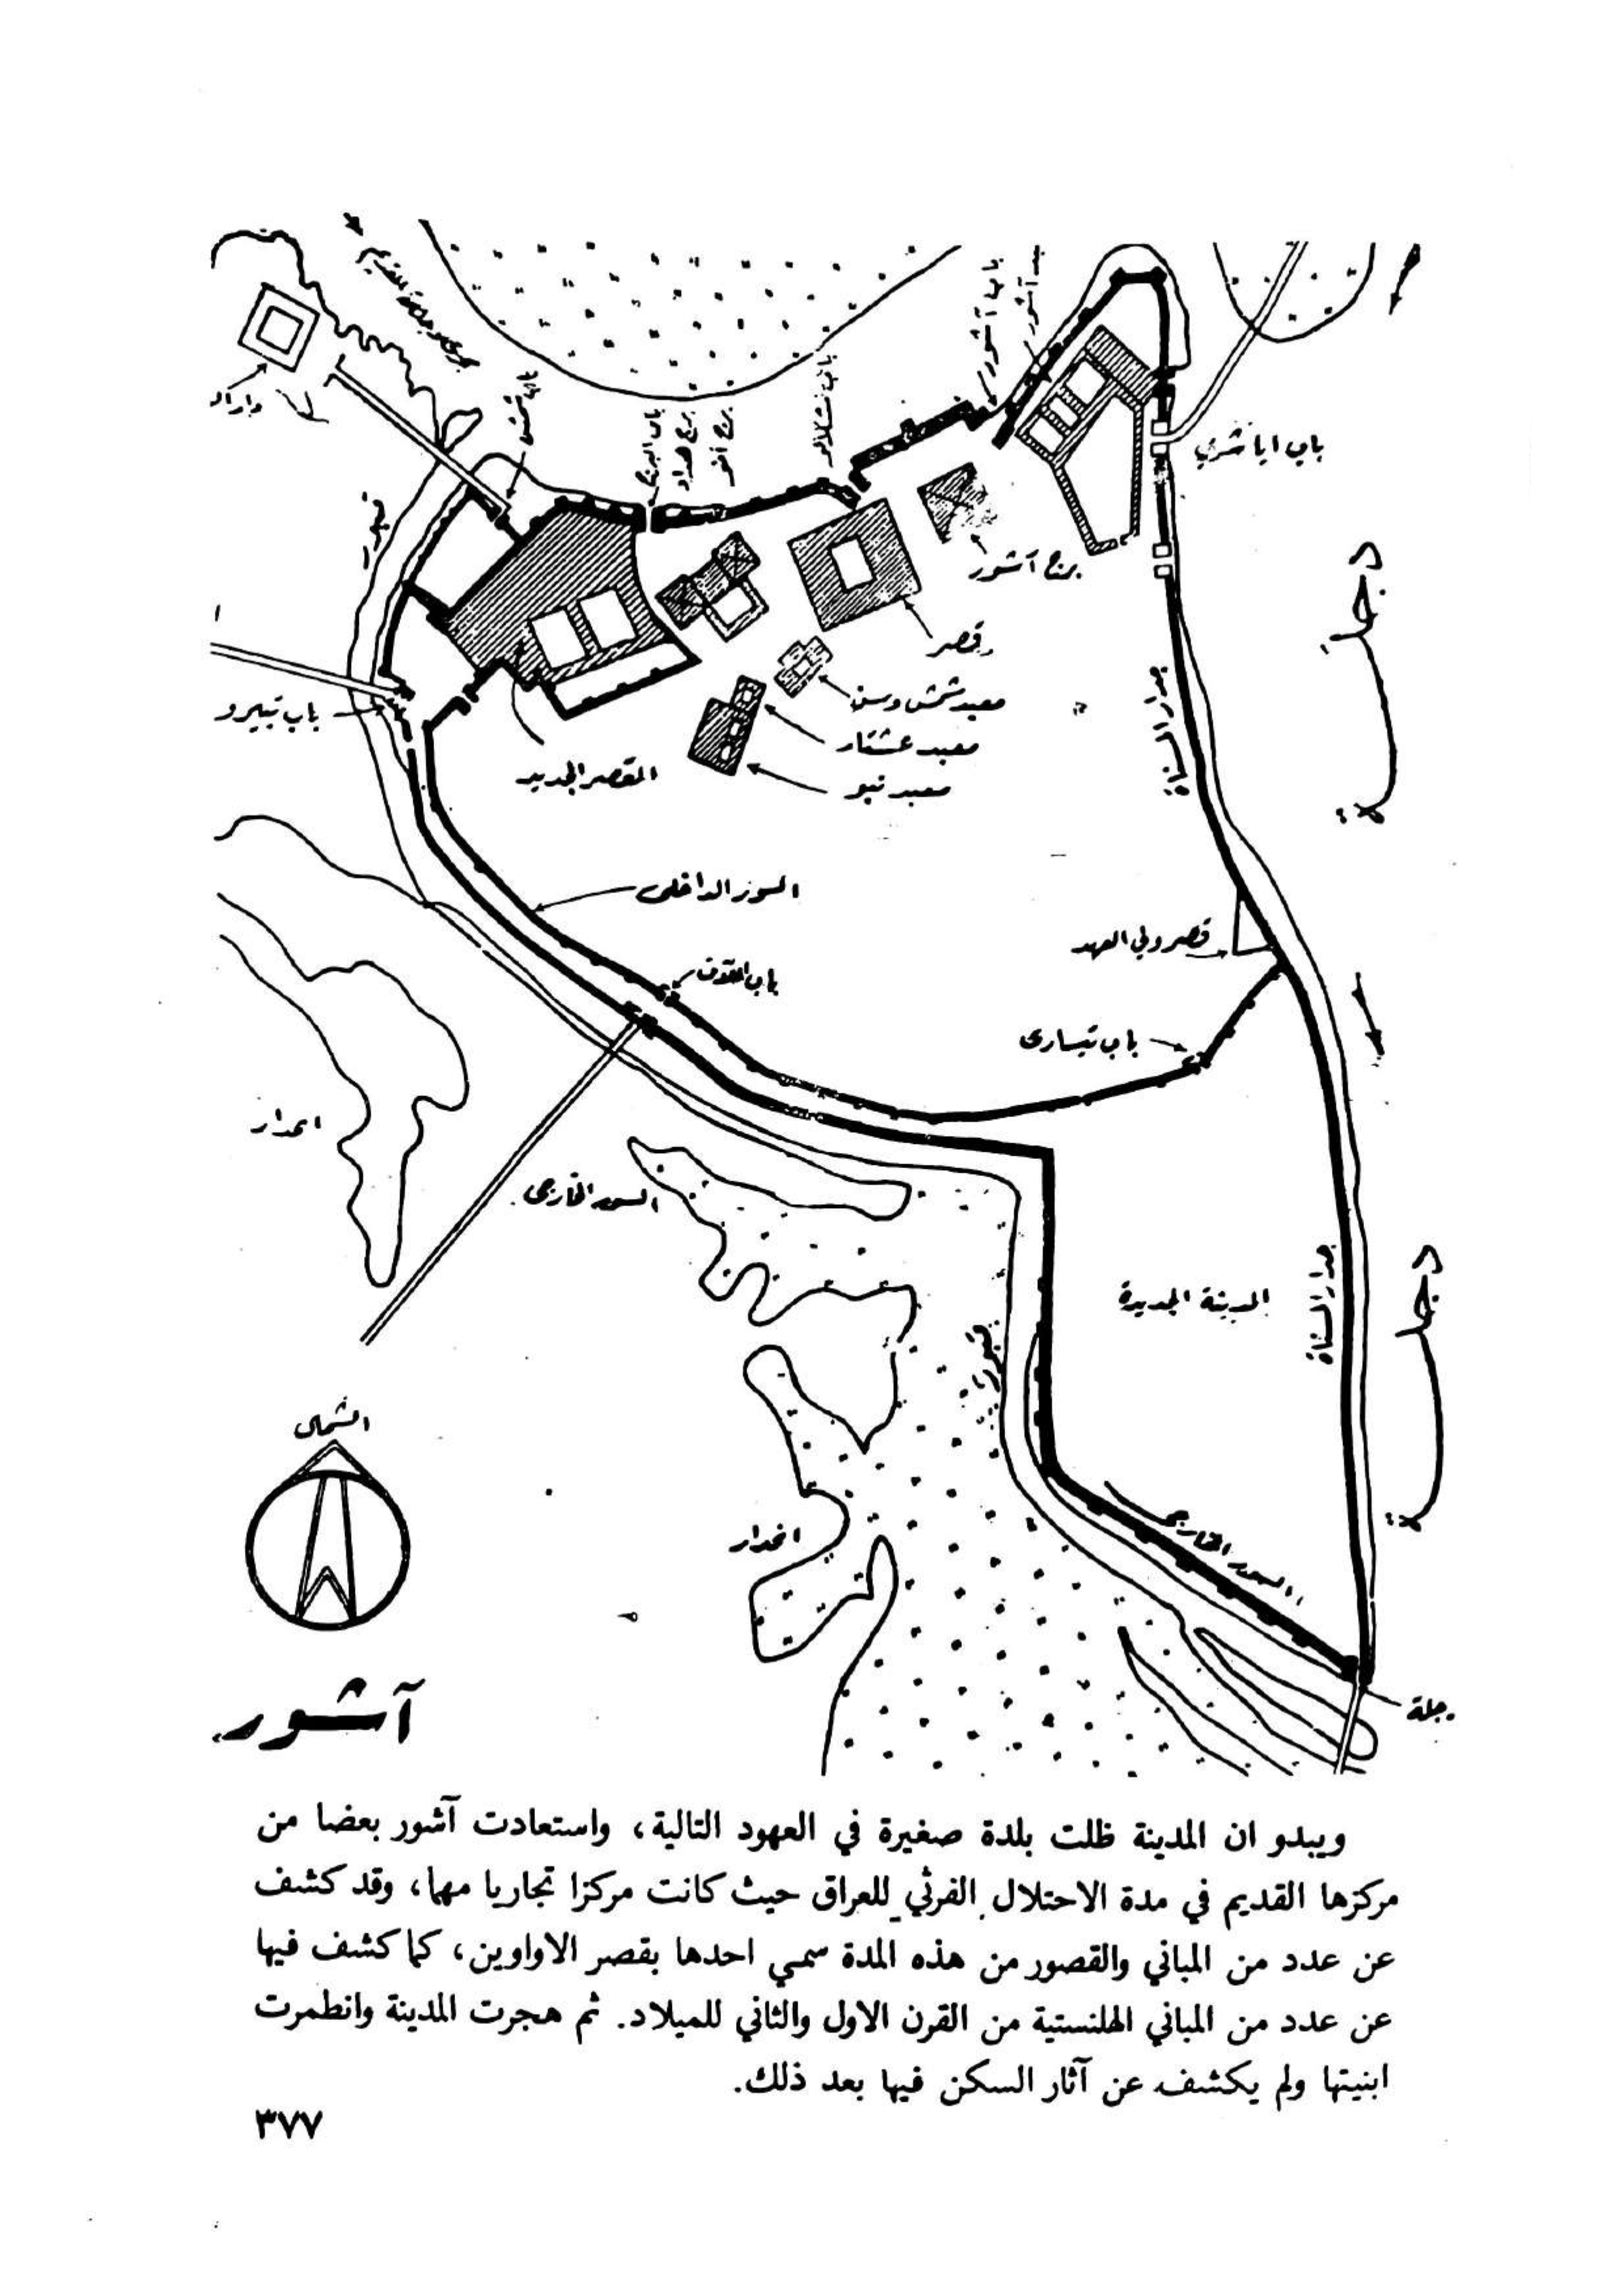 باب آشور
باب شمش
باب البرج
برج هداد
برج آنو
باب ايا شري
برج آشور
قصر
معبد شمش وسن
معبد عشتار
معبد نبو
القصر الجديد
باب تبيرو
جدار المسناة
دجلة
السور الداخلي
قصر ولي العهد
باب تيسارى
انحدار
السور الخارجي
المدينة الجديدة
جدار المسناة
دجلة
قبور
الشمال
انحدار
السور الخارجي
دجلة
آشور
ويبدو ان المدينة ظلت بلدة صغيرة في العهود التالية، واستعادت آشور بعضا من
مركزها القديم في مدة الاحتلال الفرثي للعراق حيث كانت مركزا تجاريا مهما، وقد كشف
عن عدد من المباني والقصور من هذه المدة سمي احدها بقصر الاواوين، كما كشف فيها
عن عدد من المباني الهلنستية من القرن الاول والثاني للميلاد. ثم هجرت المدينة وانطمرت
ابنيتها ولم يكشف عن آثار السكن فيها بعد ذلك.
٣٧٧